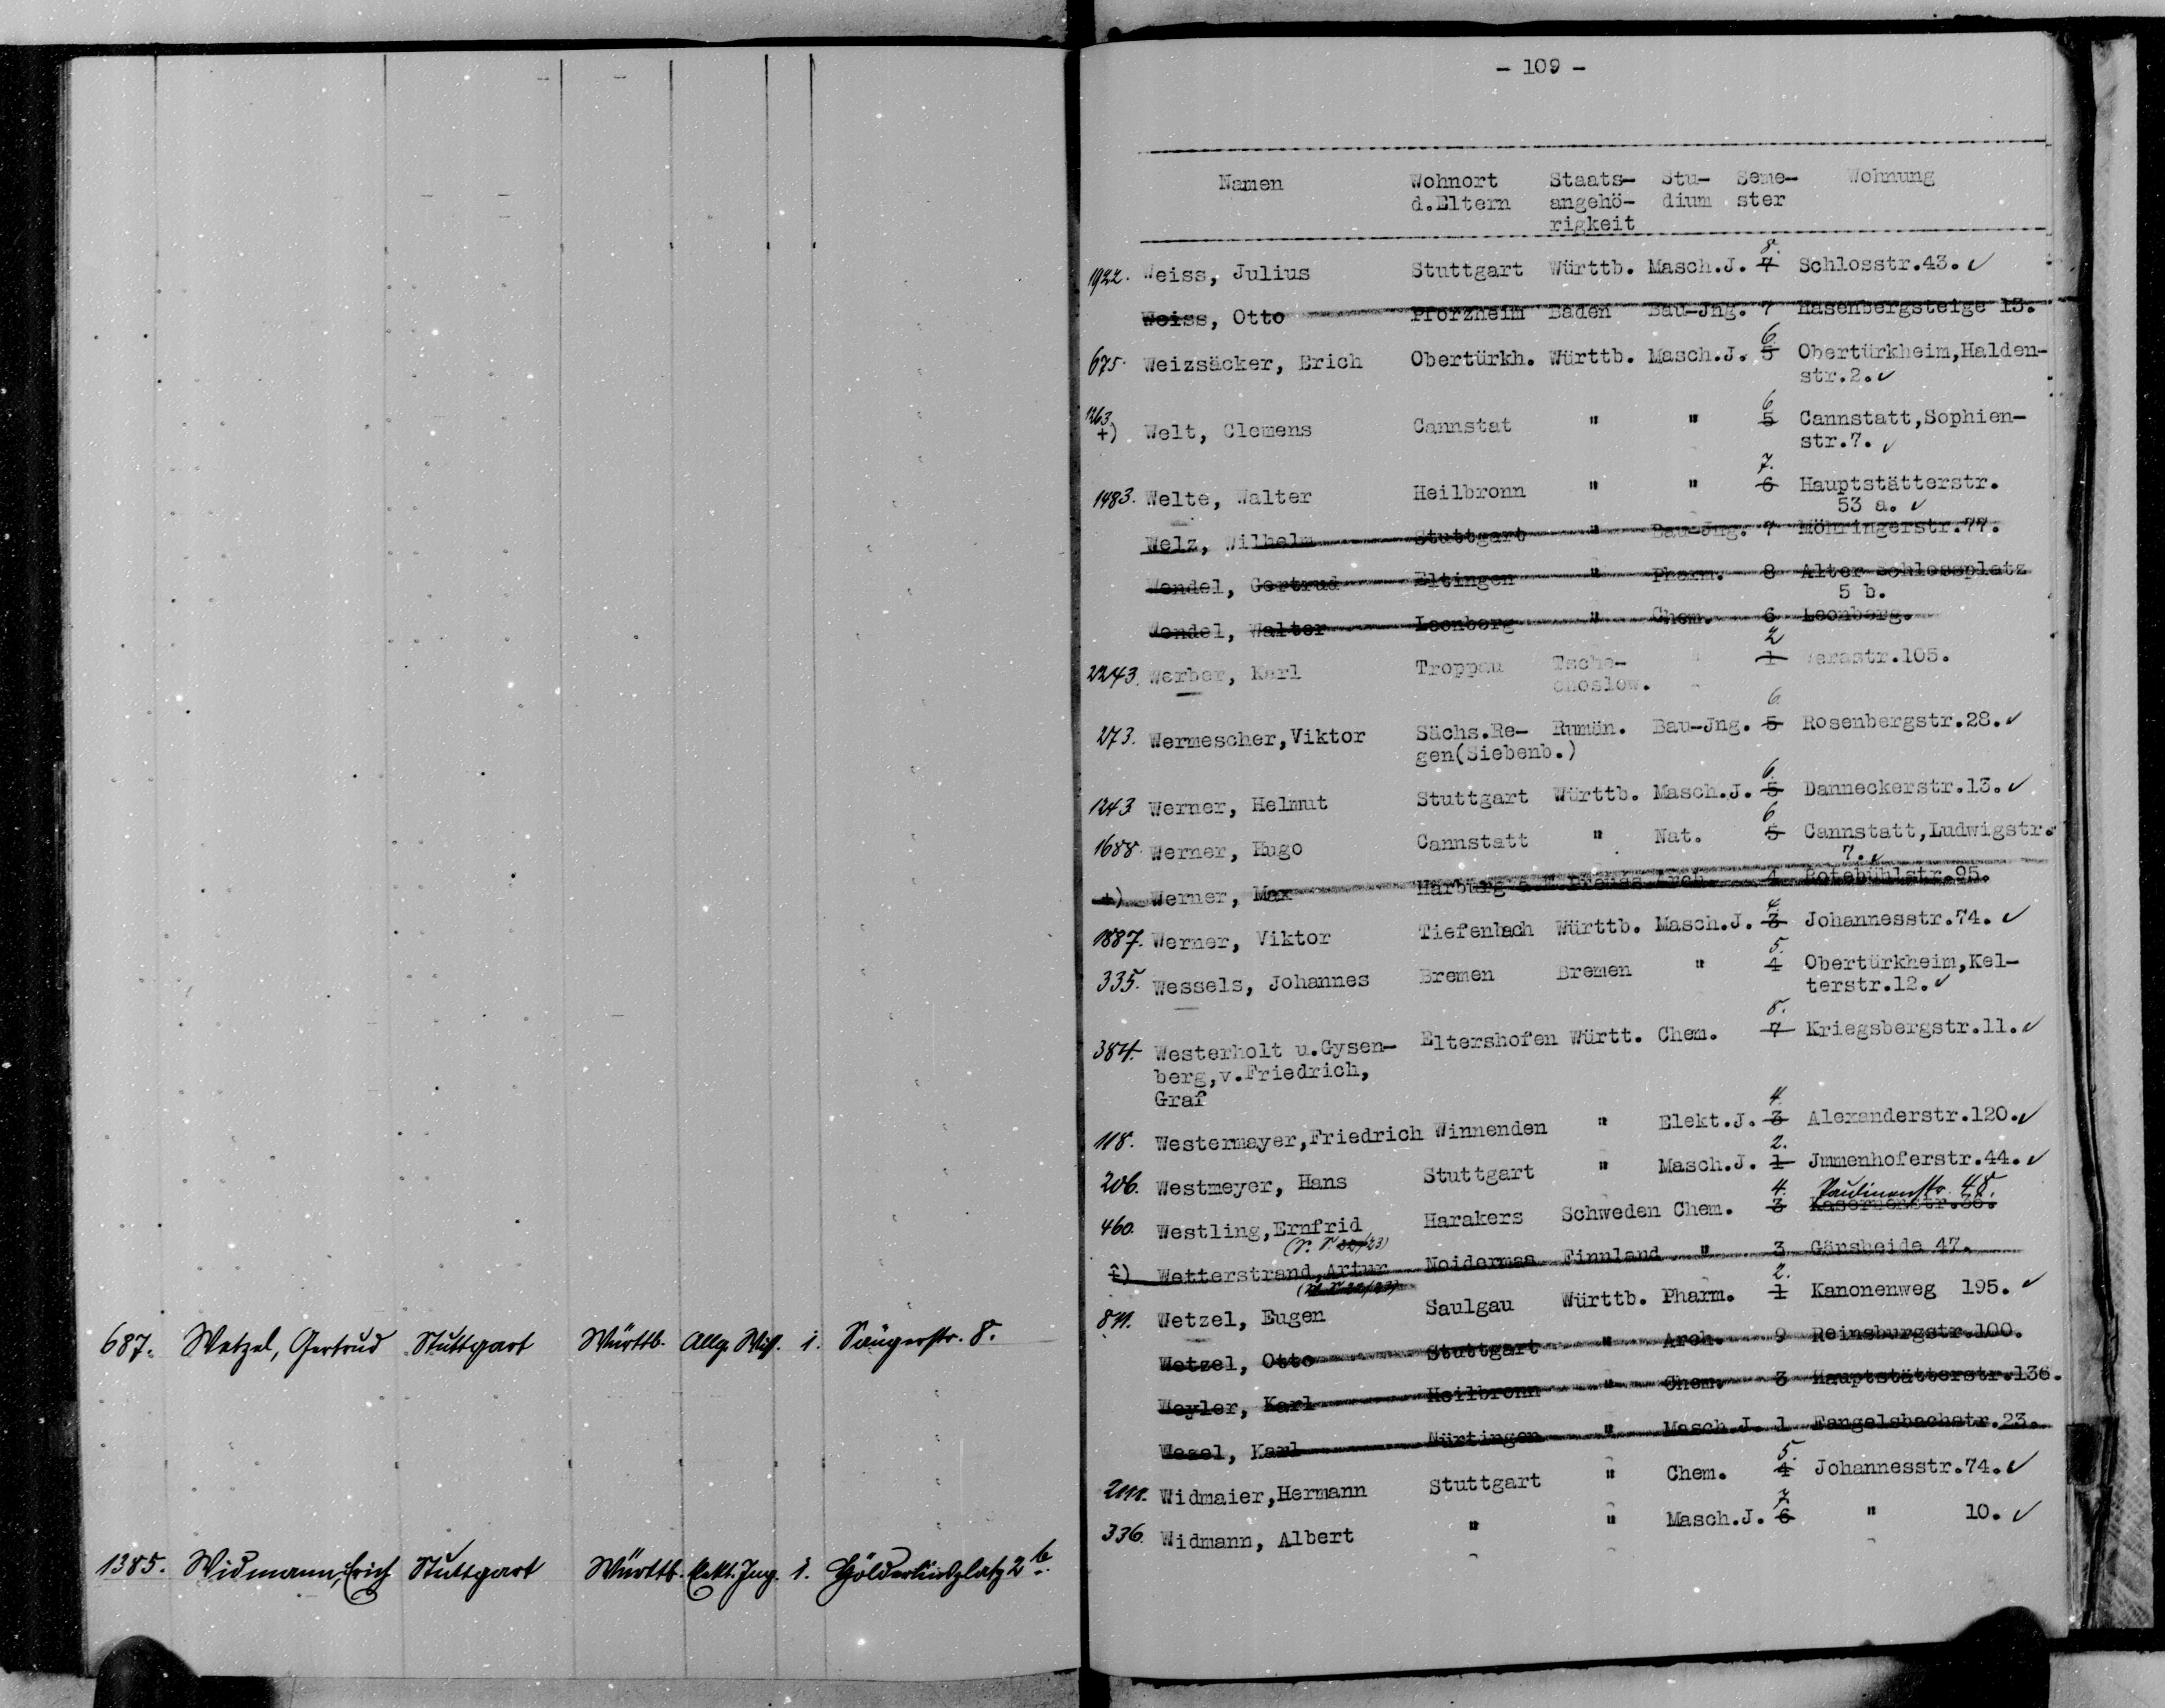 687. Wetzel, Gertrud Stuttgart Württb. Allg. Wiss. 1. Sängerstr. 8.
1385. Widmann, Erich Stuttgart Württb. Elekt. Ing. 1. Hölderlinplatz 2 b.
- 109 -
Namen Wohnort Staats- Stu- Seme- Wohnung
d.Eltern angehö- dium ster
rigkeit
8.
1922. Weiss, Julius Stuttgart Württb. Masch.J. 7 Schlosstr.43. ✓
Weiss, Otto Pforzheim Baden Bau-Jng. 7 Hasenbergsteige 13.
6
675. Weizsäcker, Erich Obertürkh. Württb. Masch.J. 5 Obertürkheim,Halden-
str.2. ✓
1263 6
+) Welt, Clemens Cannstat " " 5 Cannstatt,Sophien-
str.7. ✓
7.
1483. Welte, Walter Heilbronn " " 6 Hauptstätterstr.
53 a. ✓
Welz, Wilhelm Stuttgart " Bau-Jng. 7 Möhringerstr.77.
Wendel, Gertrud Eltingen " Pharm. 8 Alter Schlossplatz
5 b.
Wendel, Walter Leonberg " Chem. 6 Leonberg.
2
2243. Werber, Karl Troppau Tsche- " 1 Werastr.105.
choslow.
6.
273. Wermescher,Viktor Sächs.Re- Rumän. Bau-Jng. 5 Rosenbergstr.28. ✓
gen(Siebenb.)
6.
1243 Werner, Helmut Stuttgart Württb. Masch.J. 5 Danneckerstr.13. ✓
6
1688. Werner, Hugo Cannstatt " Nat. 5 Cannstatt,Ludwigstr.
7. ✓
+) Werner, Max Harburg a.E. Preuss Arch. 4 Rotebühlstr.95.
4.
1887. Werner, Viktor Tiefenbach Württb. Masch.J. 3 Johannesstr.74. ✓
5.
335. Wessels, Johannes Bremen Bremen " 4 Obertürkheim,Kel-
terstr.12. ✓
8.
384. Westerholt u.Gysen- Eltershofen Württ. Chem. 7 Kriegsbergstr.11. ✓
berg,v.Friedrich,
Graf
4.
118. Westermayer,Friedrich Winnenden " Elekt.J. 3 Alexanderstr.120. ✓
2.
206. Westmeyer, Hans Stuttgart " Masch.J. 1 Jmmenhoferstr.44. ✓
4. Paulinenstr. 48.
460. Westling,Ernfrid Harakers Schweden Chem. 3 Kasernenstr.36.
+) Wetterstrand,Artur Noidermaa Finnland " 3 Gänsheide 47.
2.
811. Wetzel, Eugen Saulgau Württb. Pharm. 1 Kanonenweg 195. ✓
Wetzel, Otto Stuttgart " Arch. 9 Reinsburgstr.100.
Weyler, Karl Heilbronn " Chem. 3 Hauptstätterstr.136.
Wezel, Karl Nürtingen " Masch.J. 1 Fangelsbachstr.23.
5.
2111. Widmaier,Hermann Stuttgart " Chem. 4 Johannesstr.74. ✓
7
336. Widmann, Albert " " Masch.J. 6 " 10. ✓